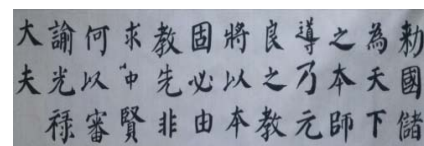 勅國儲
為天下
之本師
導乃元
良之教
將以本
固必由
教先非
求中賢
何以審
諭光禄
大夫